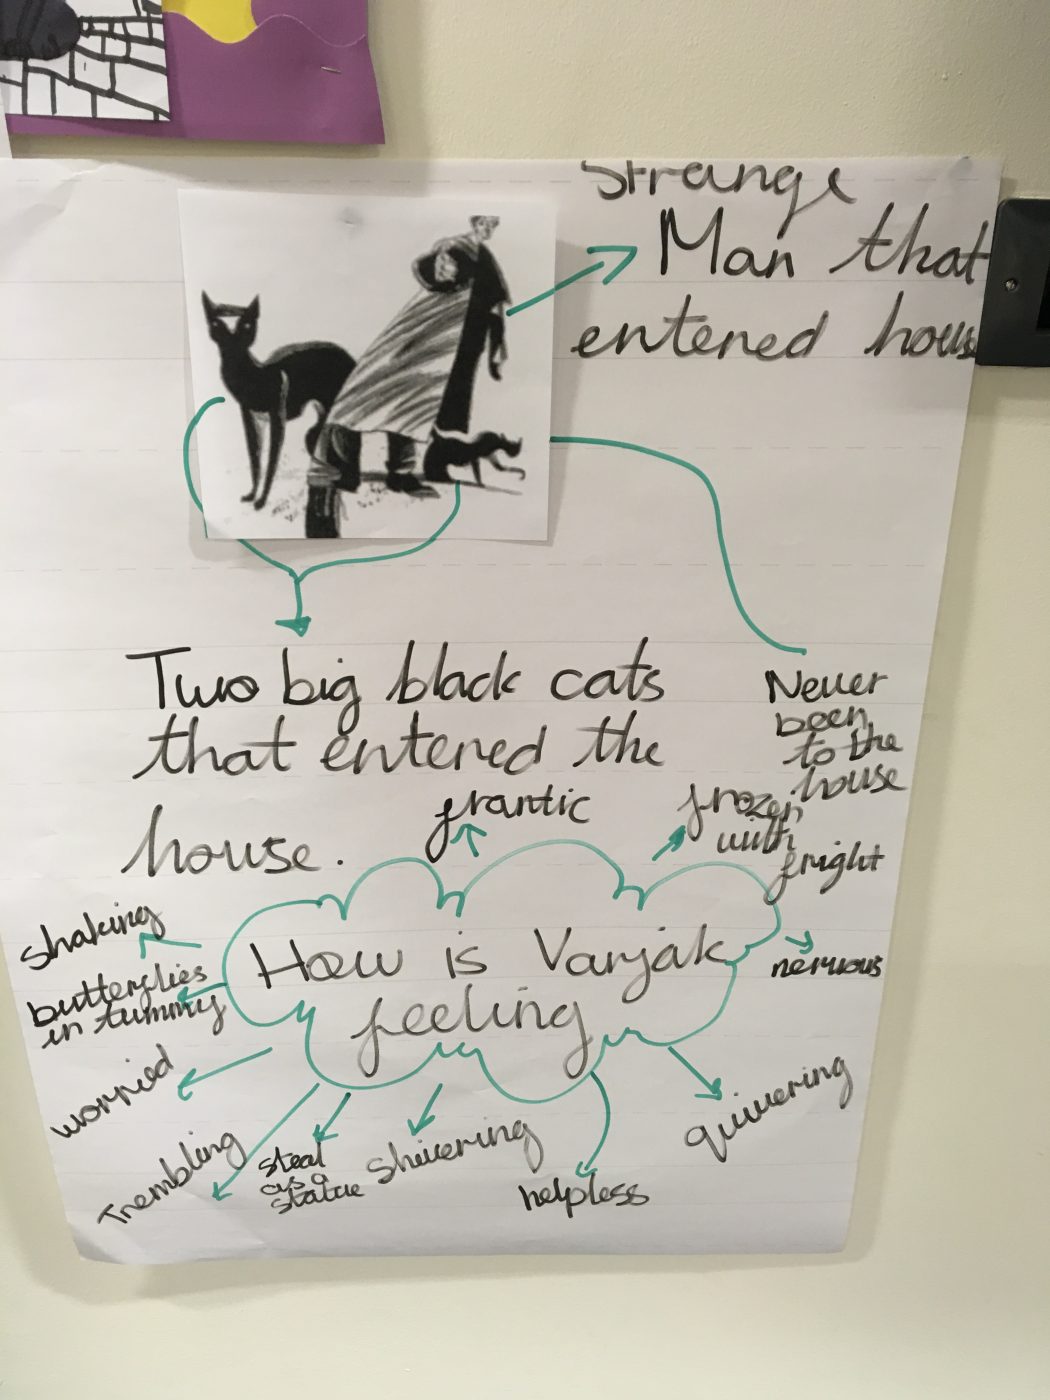 Strange
Man that
entered house
Two big black cats
that entered the
house.
Never
been
to the
house
frantic
frozen
with
fright
shaking
butterflies
in tummy
worried
Trembling
steal
as a
statue
shivering
helpless
quivering
nervous
How is Varjak
feeling